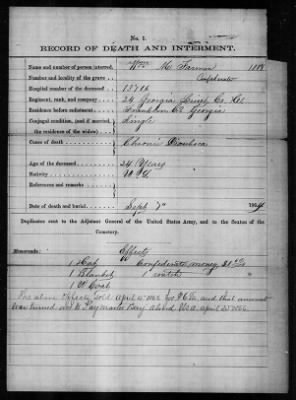 No. 1.
RECORD OF DEATH AND INTERMENT.
Name and number of person interred, Wm H. Farmer 1888
Number and locality of the grave Confederate
Hospital number of the deceased
Regiment, rank, and company 24 Georgia
Residence before enlistment Franklin Co Georgia
Conjugal condition, (and if married, Single
the residence of the widow)
Cause of death Chronic Diarrhoea
Age of the deceased 24 Years
Nativity
References and remarks
Date of death and burial Sept 7th 1864
Duplicates sent to the Adjutant General of the United States Army, and to the Sexton of the
Cemetery.
Memoranda: Effects
1 Hat Confederate money
1 Blanket 1 watch
1 Coat
The above Effects sold April and that amount
was turned over to Paymaster U.S.A. April